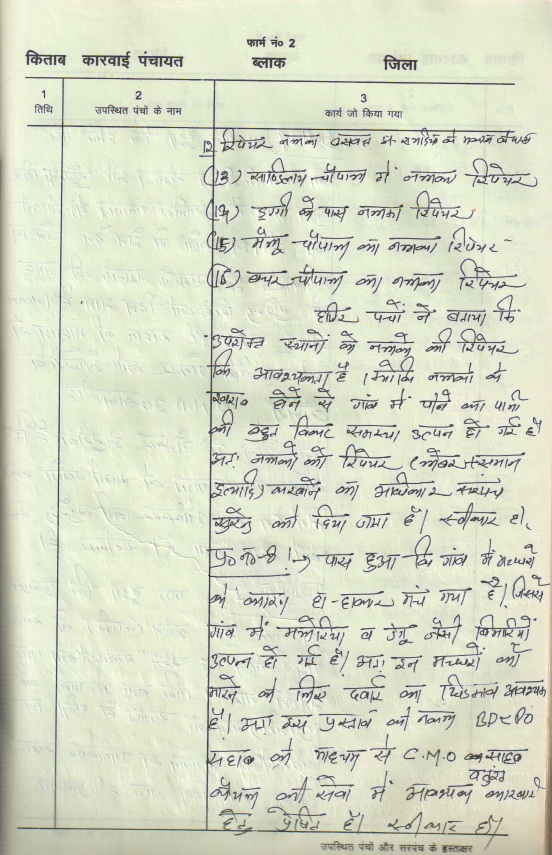 फार्म नं० 2
किताब कारवाई पंचायत ब्लाक जिला
1 2 3
तिथि उपस्थित पंचों के नाम कार्य जो किया गया
12 रिपेयर नलका के मकान के पास
(13) चौपाल में नलका रिपेयर
(14) झुग्गी के पास नलका रिपेयर
(15) चौपाल का नलका रिपेयर
(16) चौपाल का नलका रिपेयर
हाजिर पंचों ने बताया कि
उपरोक्त स्थानों के नलके की रिपेयर
कि आवश्यकता है। क्योंकि नलको के
खराब होने से गांव में पीने का पानी
की बहुत विकट समस्या उत्पन हो गई है
अतः नलको की रिपेयर (लेबर + सामान
इत्यादि) करवाने का अधिकार सरपंच
को दिया जाता है। स्वीकार है।
प्र० न०-8 !→ पास हुआ कि गांव में मच्छरो
के कारण हा-हाकार मच गया है। जिससे
गांव में मलेरिया व डेंगू जैसी बिमारियाँ
उत्पन हो गई है। अतः इन मच्छरों को
मारने के लिए दवाई का छिडकाव आवश्यक
है। अतः इस प्रस्ताव की नकल BD&PO
सहाब के माध्यम से C.M.O साहब
कैथल की सेवा में आवश्यक कारवाई
हेतु प्रेषित है। स्वीकार है।
उपस्थित पंचों और सरपंच के हस्ताक्षर